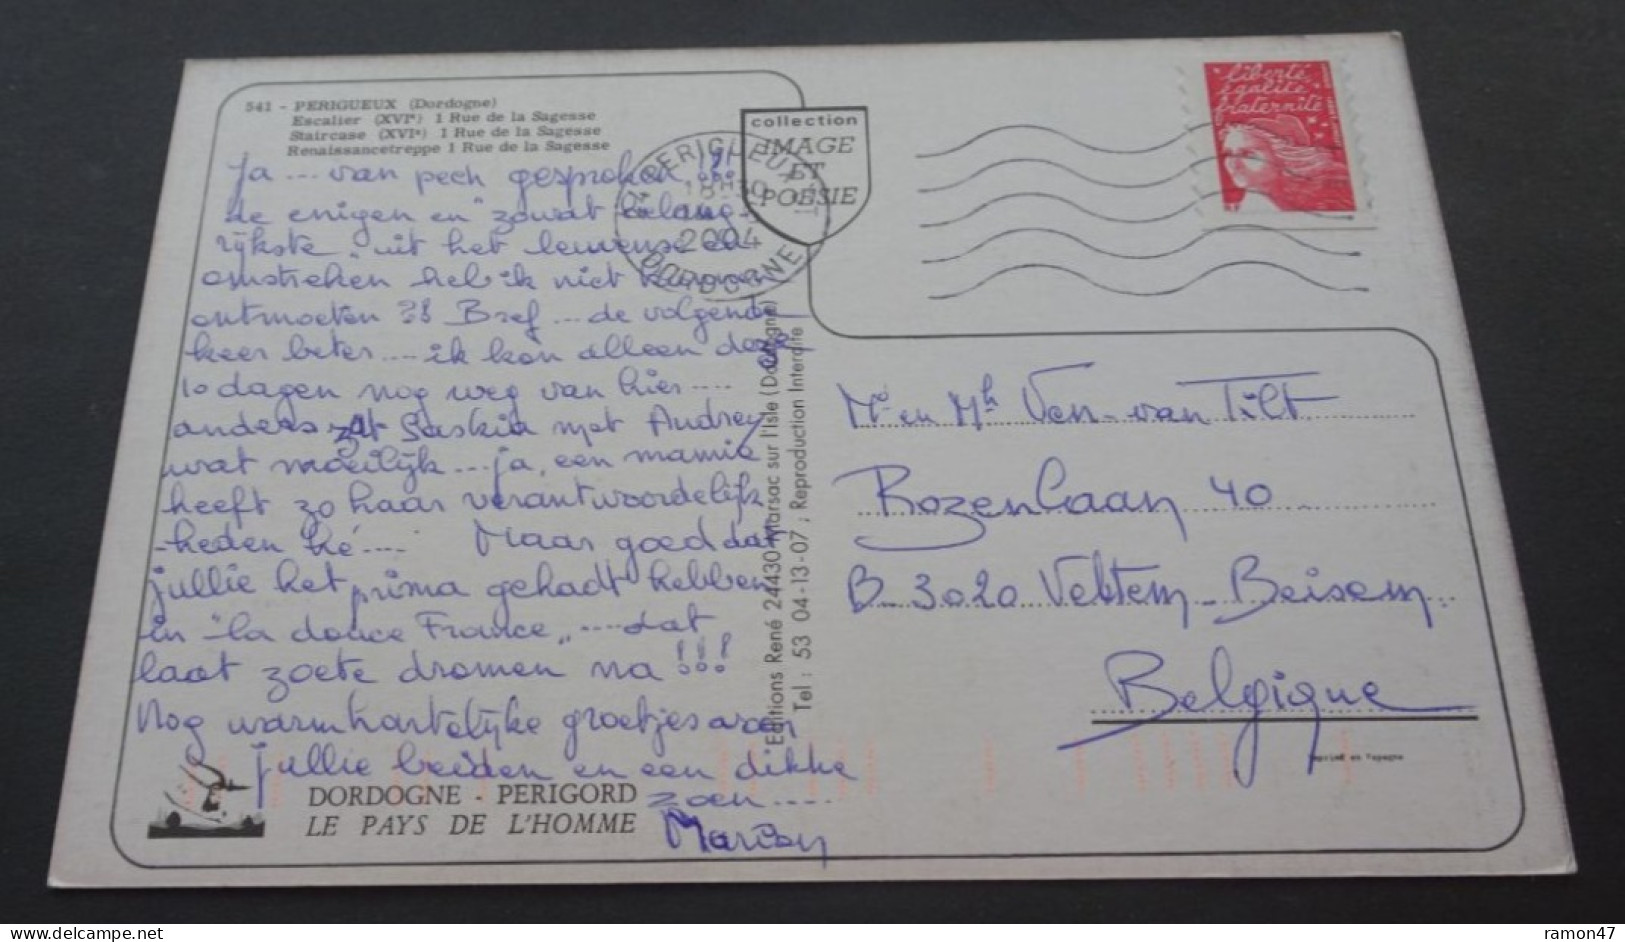 541 - PERIGUEUX (Dordogne)
Escalier (XVIe) 1 Rue de la Sagesse
Staircase (XVIe) 1 Rue de la Sagesse
Renaissancetreppe 1 Rue de la Sagesse
collection
IMAGE
ET
POÉSIE
PERIGUEUX
18H30
2004
DORDOGNE
liberté
égalité
fraternité
Ja ... van pech gesproken !!!
de enigen en "zowat belang-
rijkste" uit het leuvense en
omstreken heb ik niet kunnen
ontmoeten ?! Bref ... de volgende
keer beter .... ik kon alleen deze
10 dagen nog weg van hier ....
anders zat Saskia met Audrey
wat moeilijk ... ja, een mamie
heeft zo haar verantwoordelijk
-heden hé .... Maar goed dat
jullie het prima gehadt hebben
in "la douce France" .... dat
laat zoete dromen na !!!
Nog warmhartelijke groetjes aan
jullie beiden en een dikke
zoen ....
Marion
DORDOGNE - PERIGORD
LE PAYS DE L'HOMME
Editions René 24430 Marsac sur l'Isle (Dordogne)
Tel : 53 04-13-07 ; Reproduction Interdite
Mr en Mh Ven-van Tilt
Rozenlaan 40
B-3020 Veltem-Beisem
Belgique
ramon47